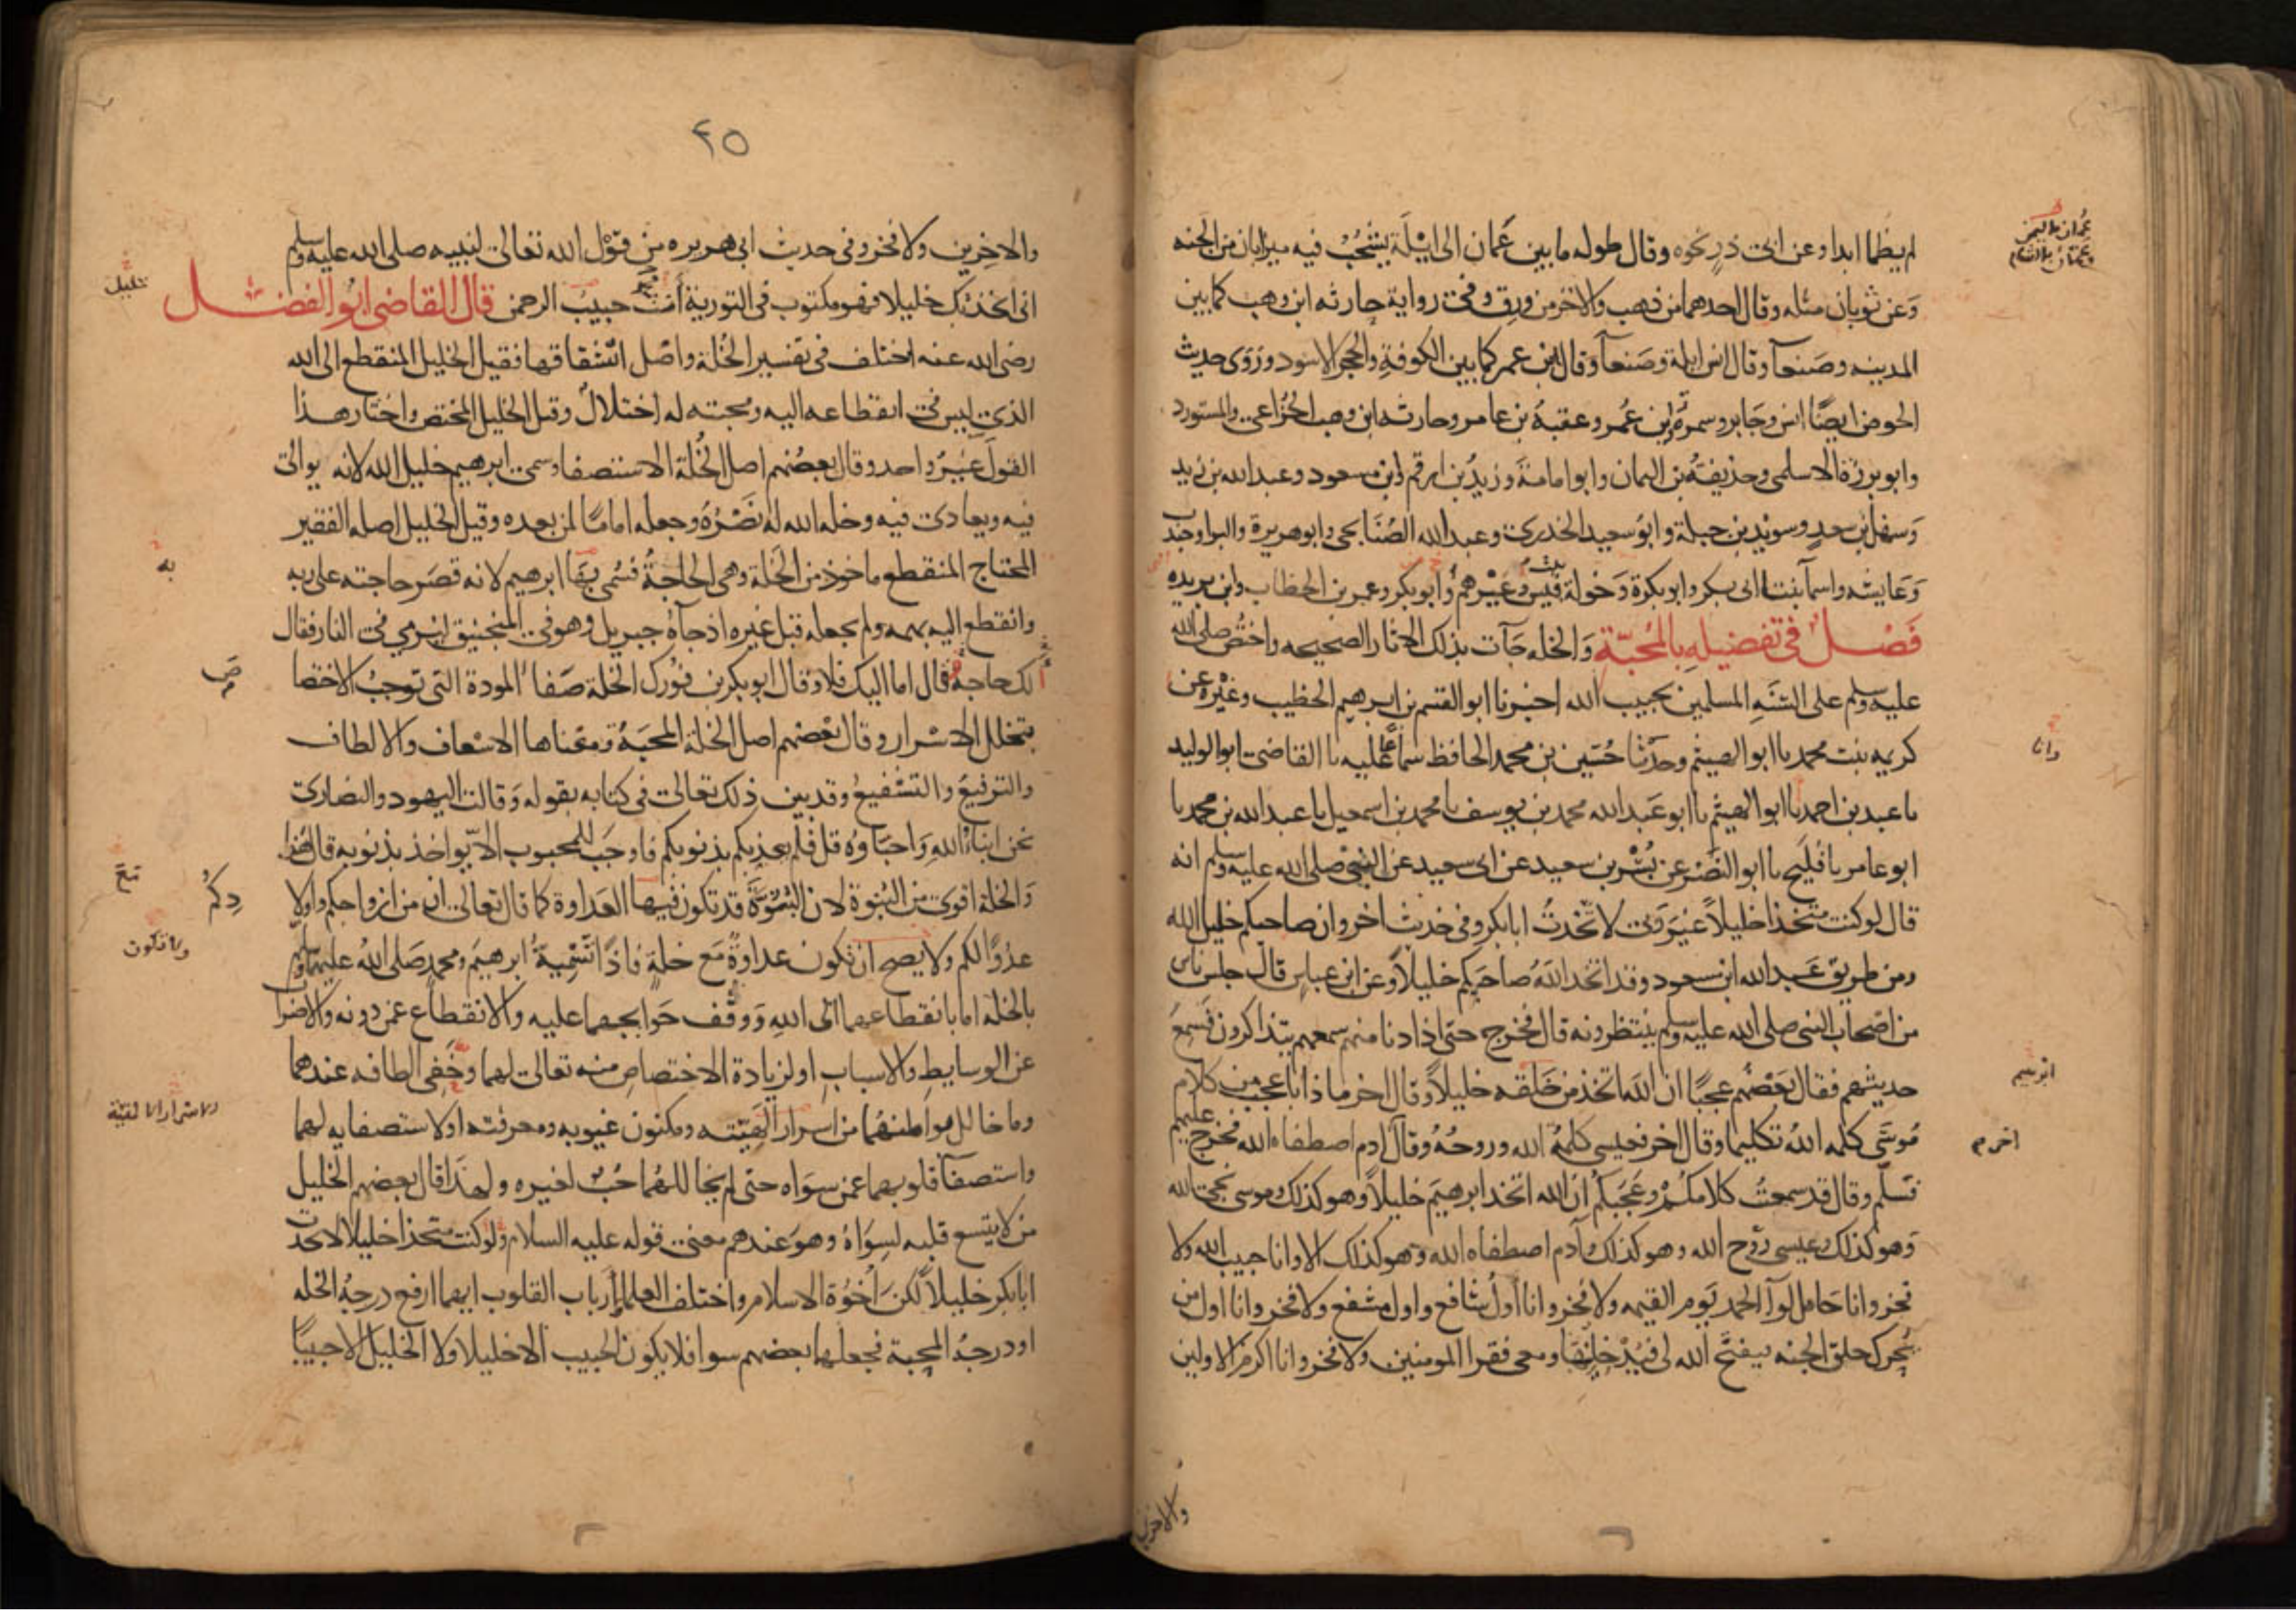 لم يظما ابدا وعن ابى ذر نحوه وقال طوله ما بين عَمان الى ايْلَة يشخُبُ فيه ميزابان من الجنه
وَعن ثوبان مثله وقال احدهما من ذهب والاخر من ورق وفى رواية حارثه ابن وهب كما بين
المدينه وصَنعآ وقال انس ايلة وصَنعآ وقال ابن عمر كما بين الكوفةِ والحجر الاسود وَروَى حديث
الحوض ايضًا انس وجَابر وسمرة وابن عُمر وعقبةُ بن عامر وحارثه ابن وهب الخُزاعى والمستورد
وابو برزة الاسلمى وحذيفتُه بن اليمان وابو امامَة وَزيدُ بن ارقم وابن مسعود وعبد الله بن زيد
وَسهل بن سعدٍ وسويد بن جبلة وابوُ سعيد الخدرى وعبد الله الصُنَابحى وابو هريرة والبرا وجندب
وَعايشه واسمآ بنتا ابى بكر وابو بكرة وَخولة بنت قيس وَغيْرهم وابو بكر وعمر بن الخطاب وابن بريده
فَصْلٌ فى تفضيلِهِ بالمُحبّةِ وَالخله جَآت بذلك الاثار الصحيحه واختُص صلى الله
عليه وسلم على السنَهِ المسلمين بحبيب الله اخبرنا ابو القسم بن ابرهيم الخطيب وغيْره عن
كريمه بنت محمد نا ابو الهيثم وحدّثنا حُسَين بن محمد الحافظ سماعًا عليه نا القاضى ابو الوليد
نا عبد بن احمد نا ابو الهيثم نا ابو عَبد الله محمد بن يوسف نا محمد بن اسمعيل نا عبد الله بن محمد نا
ابو عامر نا فُليَح نا ابو النَضْر عن بُسْر بن سعيد عن ابى سعيد عن النبىّ صلى الله عليه وسلم انه
قال لو كنت متخذا خليلاً غيْرَ ربى لاتّخذتُ ابا بكر وفى حديث اخر وان صاحبكم خليل الله
ومن طريق عَبد الله ابن مسعود وقد اتخذ اللهُ صاحبَكم خليلاً وعن ابن عباس قال جلس ناس
من اصْحَاب النبى صلى الله عليه وسلم ينتظرونه قال فخرج حتى اذا دنا منهم سمعهم يتذاكرون فَسَمِعَ
حديثهم فقال بعَضُهم عجبًا ان اللهَ اتخذ من خَلقه خليلاً وقال اخر ما ذا باعجب من كلام
مُوسَى كلّمه اللهُ تكليما وقال اخر فعيسى كلمةُ الله وروحُهُ وقال ادم اصطفاه الله فخرج عليهم
فسَلّم وقال قد سمعتُ كلامكُمْ وعَجَبَكُم ان الله اتخذ ابرهيمَ خليلاً وهو كذلك وموسى نجى الله
وَهو كذلك وعيسى رُوح الله وهو كذلك وآدم اصطفاه الله وَهو كذلك الا وانا حبيب الله ولا
فخر وانا حَامل لوآ الحمد يَوم القيمه ولا فخر وانا اولُ شافع واول مشفع ولا فخر وانا اول من
يُحرك حلق الجنه فيفتح الله لى فيُدْخِلنيهَا ومعى فقرا المومنين ولا فخر وانا اكرم الاولين
عُمان باليمن
وعَمّان بالشام
وانا
ابرهيم
اخر م
والاخرين
٢٥
والاخِرين ولا فخر وفى حديث ابى هريره من قوْل الله تعالى لنبيه صلى الله عليه وسلم
انى اتخذتك خليلا فهو مكتوب فى التوريةِ أنتَ حبيبُ الرحمن قالَ القاضى ابوُ الفضل
رضى الله عنه اختلف فى تفسير الخُلة واصْل اشْتقاقها فقيل الخليل المنقطع الى الله
الذى ليس فى انقطاعه اليه ومحبته له اختلالٌ وقيل الخليل المختص واختار هذا
القولَ غيْرُ واحد وقال بعضُهم اصل الخُلة الاستصفا وسمى ابرهيم خليل الله لانه يوالى
فيه ويعادى فيه وخلة الله له نَصْرُهُ وجعله امامًا لمن بعده وقيل الخليل اصله الفقير
المحتاج المنقطع ماخوذ من الخَلة وهى الحاجةُ فسُمى بهَا ابرهيم لانه قصَر حاجته على ربه
وانقطع اليه بهمه ولم يجعله قبل غيره اذ جآهُ جبريل وهو فى المنجنيق ليرمى فى النار فقال
الك حاجة قال اما اليك فلا وقال ابو بكر بن فُورك الخلة صَفا المودة التى توجبُ الاختصا
بتخلل الاسْرار وقال بعَضهم اصل الخلة المحبَةُ ومعْناها الاسْعاف والالطاف
والترفيعُ والتشْفيعُ وقد بين ذلك تعالى فى كتابه بقوله وَقالت اليهود والنصارى
نحن ابناءُ اللهِ وَاحبَاؤهُ قل فلم يعذبكم بذنوبكم فاوجَبَ للمحبوب الا يؤاخذ بذنوبه قال هذا
وَالخلة اقوى من البُنوة لان البنُوَّة قد تكون فيها العَداوة كما قال تعالى ان من ازواجكم واولا
عدُوًا لكم ولا يصح ان تكون عداوةٌ مَع خلةٍ فاذًا تَسْمِيةُ ابرهيمَ ومحمدٍ صَلى اللهُ عليهما وسلم
بالخلة اما بانقطاعهما الى اللهِ وَوقف حَوايجهما عليه والانقطاع عمن دونه والاضراب
عن الوسايطِ والاسبابِ او لزيادة الاختصاصِ منه تعالى لهما وخَفى الطافه عندهما
وما خالل بواطنهُما من اسرار الهَيّته ومكنون غيوبه ومعرفته او لاستصفايه لهما
واستصفآ قلوبهما عمن سوَاه حتى لم يخاللهُما حُبٌ لغيره ولهذا قال بعضهم الخليل
من لا يتسع قلبه لسِوَاهُ وهوَ عندهم معنى قوله عليه السلام ولو كنت متخذا خليلا لاتخذت
ابا بكر خليلاً لكنَ اُخوُة الاسلام واختلف العلما ارباب القلوب ايهما ارفع درجةُ الخله
او درجةُ المحبة فجعلهما بعضهم سوا فلا يكون الحبيب الا خليلا ولا الخليل الا حبيبًا
خليل
به
ص
دِكُمْ
ولا تكون